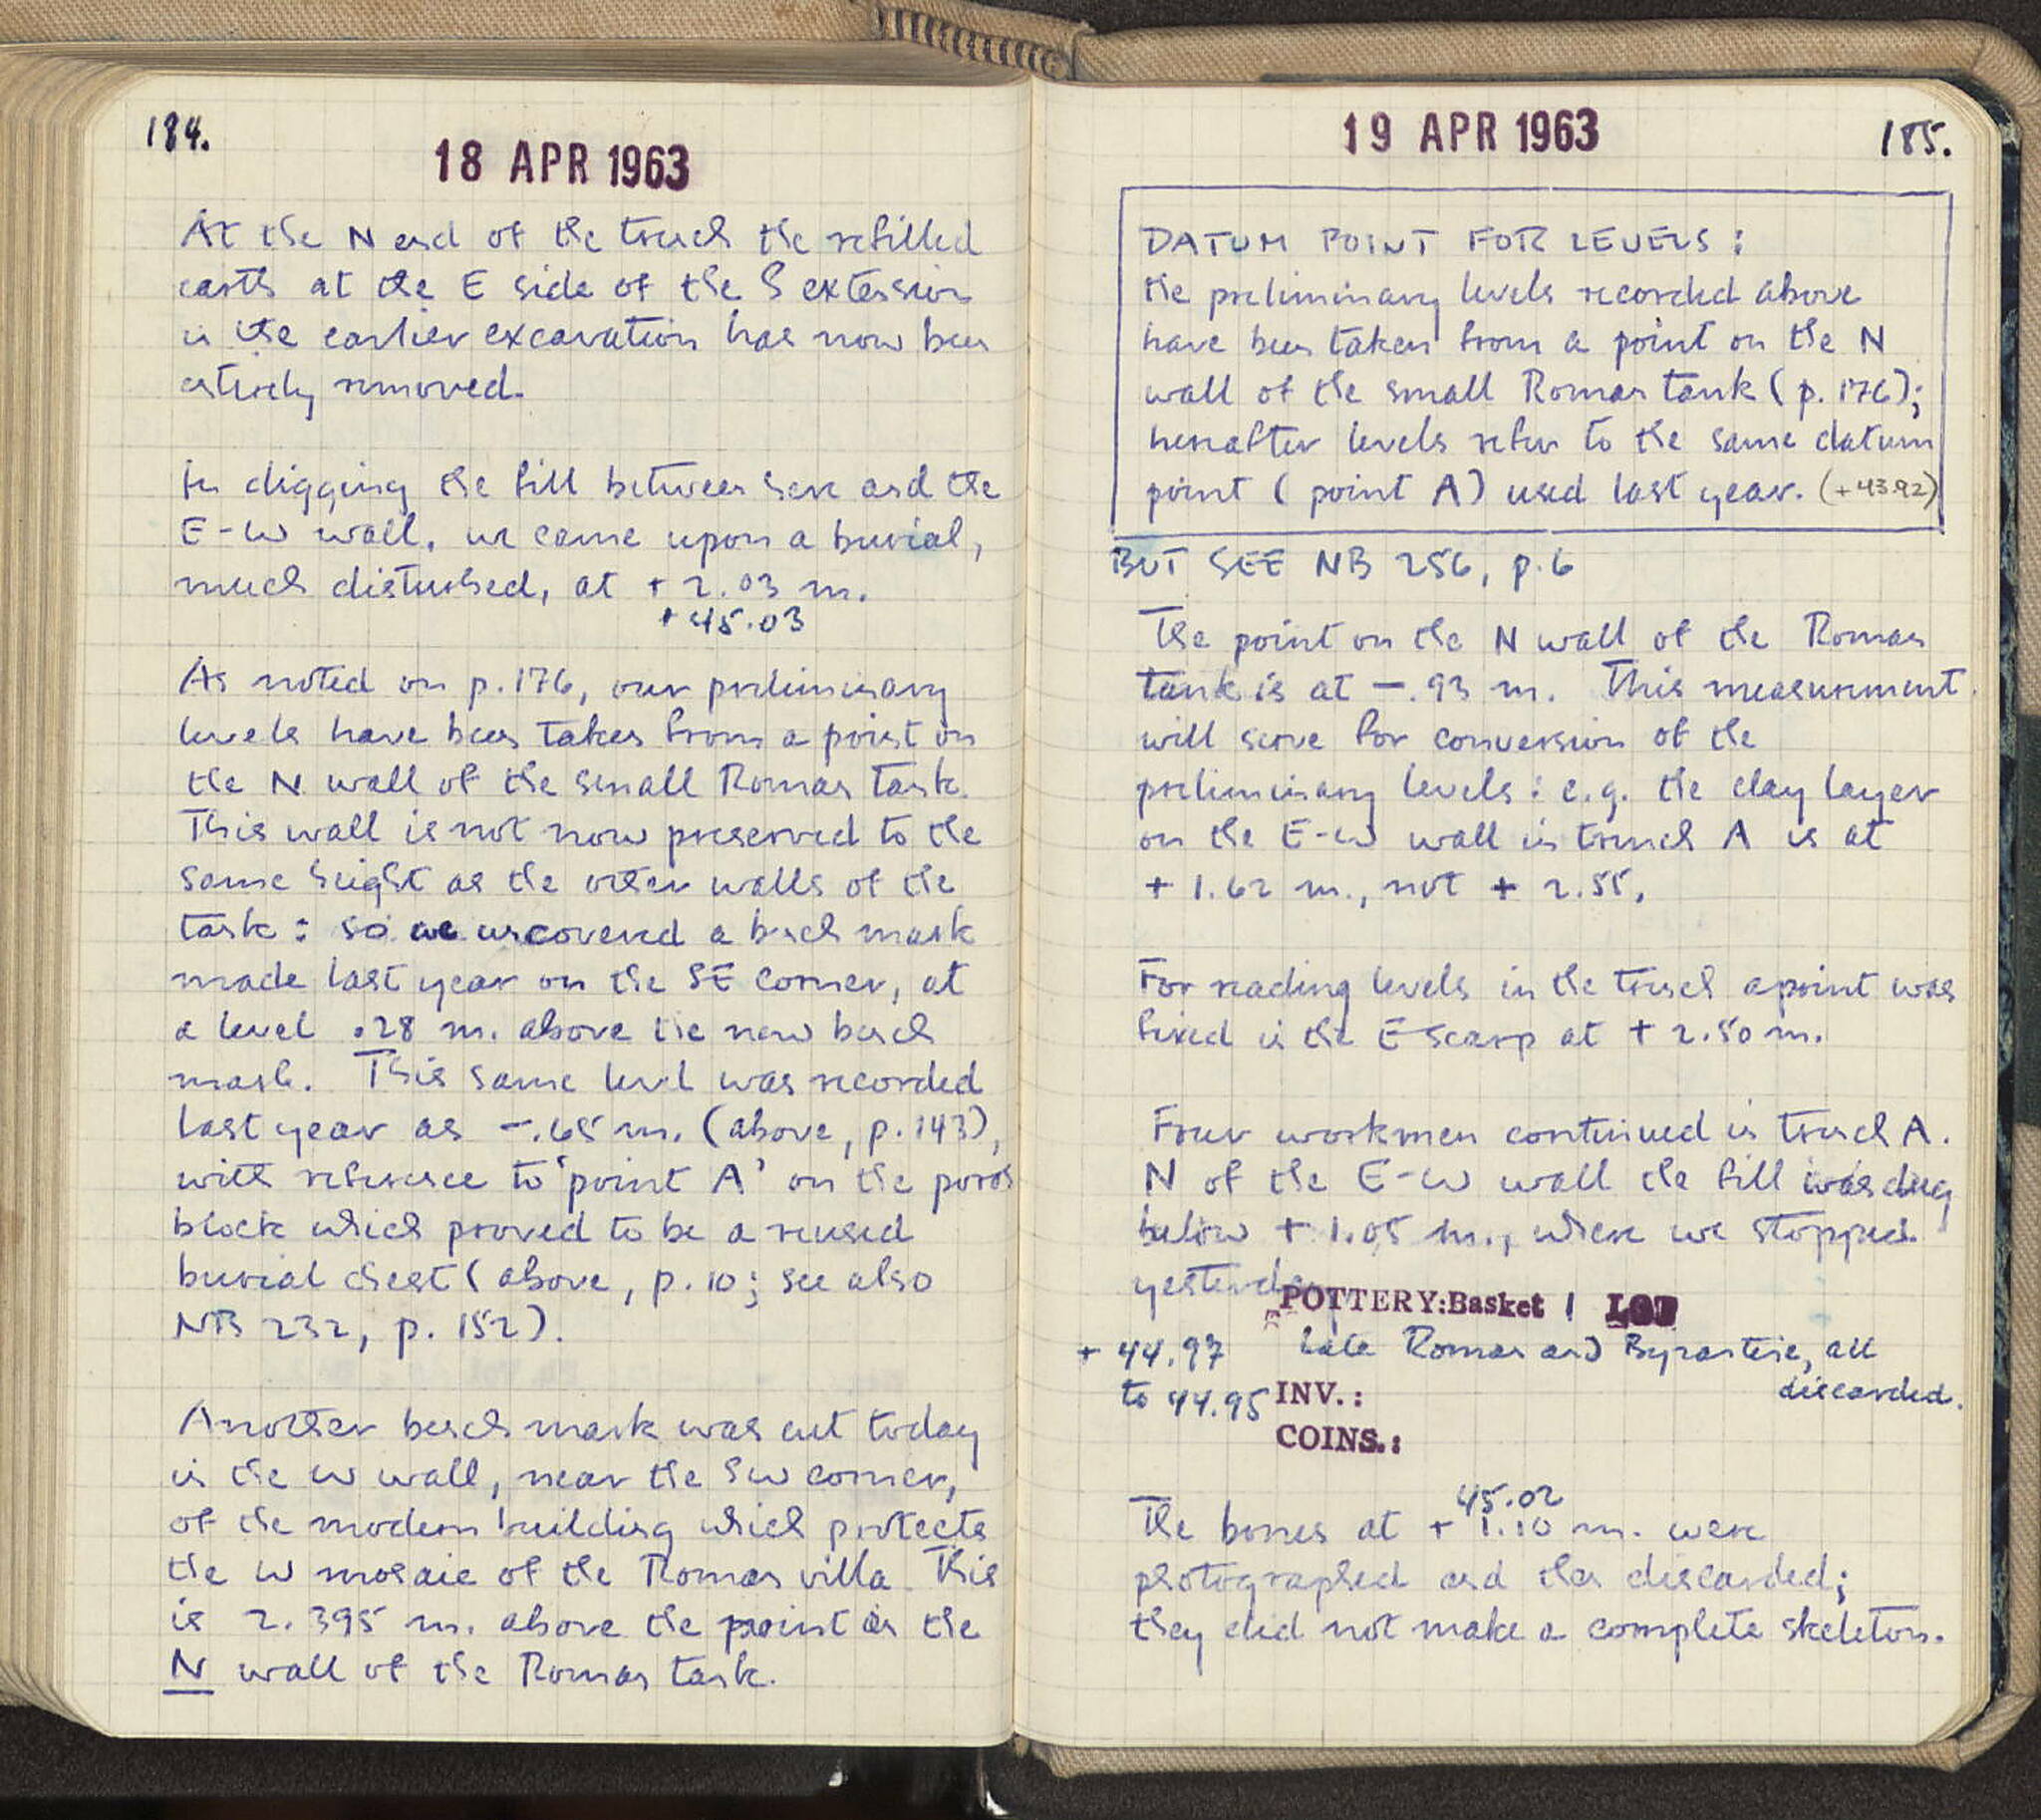 184.
18 APR 1963
At the N end of the trench the refilled
earth at the E side of the S extension
in the earlier excavation has now been
entirely removed.
In digging the fill between here and the
E-W wall, we came upon a burial,
much disturbed, at + 2.03 m.
+45.03
As noted on p.176, our preliminary
levels have been taken from a point on
the N wall of the small Roman tank.
This wall is not now preserved to the
same height as the other walls of the
tank: so we uncovered a bench mark
made last year on the SE corner, at
a level .28 m. above the new bench
mark. This same level was recorded
last year as -.65 m. (above, p.143),
with reference to 'point A' on the poros
block which proved to be a reused
burial chest (above, p.10; see also
NB 232, p. 152).
Another bench mark was cut today
in the W wall, near the SW corner,
of the modern building which protects
the W mosaic of the Roman villa. This
is 2.395 m. above the point on the
N wall of the Roman tank.
19 APR 1963
185.
DATUM POINT FOR LEVELS:
the preliminary levels recorded above
have been taken from a point on the N
wall of the small Roman tank (p.176);
hereafter levels refer to the same datum
point (point A) used last year. (+43.92)
BUT SEE NB 256, p.6
The point on the N wall of the Roman
tank is at -.93 m. This measurement
will serve for conversion of the
preliminary levels: e.g. the clay layer
on the E-W wall in trench A is at
+ 1.62 m., not + 2.55.
For reading levels in the trench a point was
fixed in the E scarp at + 2.50 m.
Four workmen continued in trench A.
N of the E-W wall the fill was dug
below + 1.05 m., where we stopped
yesterday.
POTTERY: Basket 1 LOT
+ 44.97 Late Roman and Byzantine, all
discarded.
to 44.95 INV.:
COINS.:
45.02
The bones at + 1.10 m. were
photographed and then discarded;
they did not make a complete skeleton.